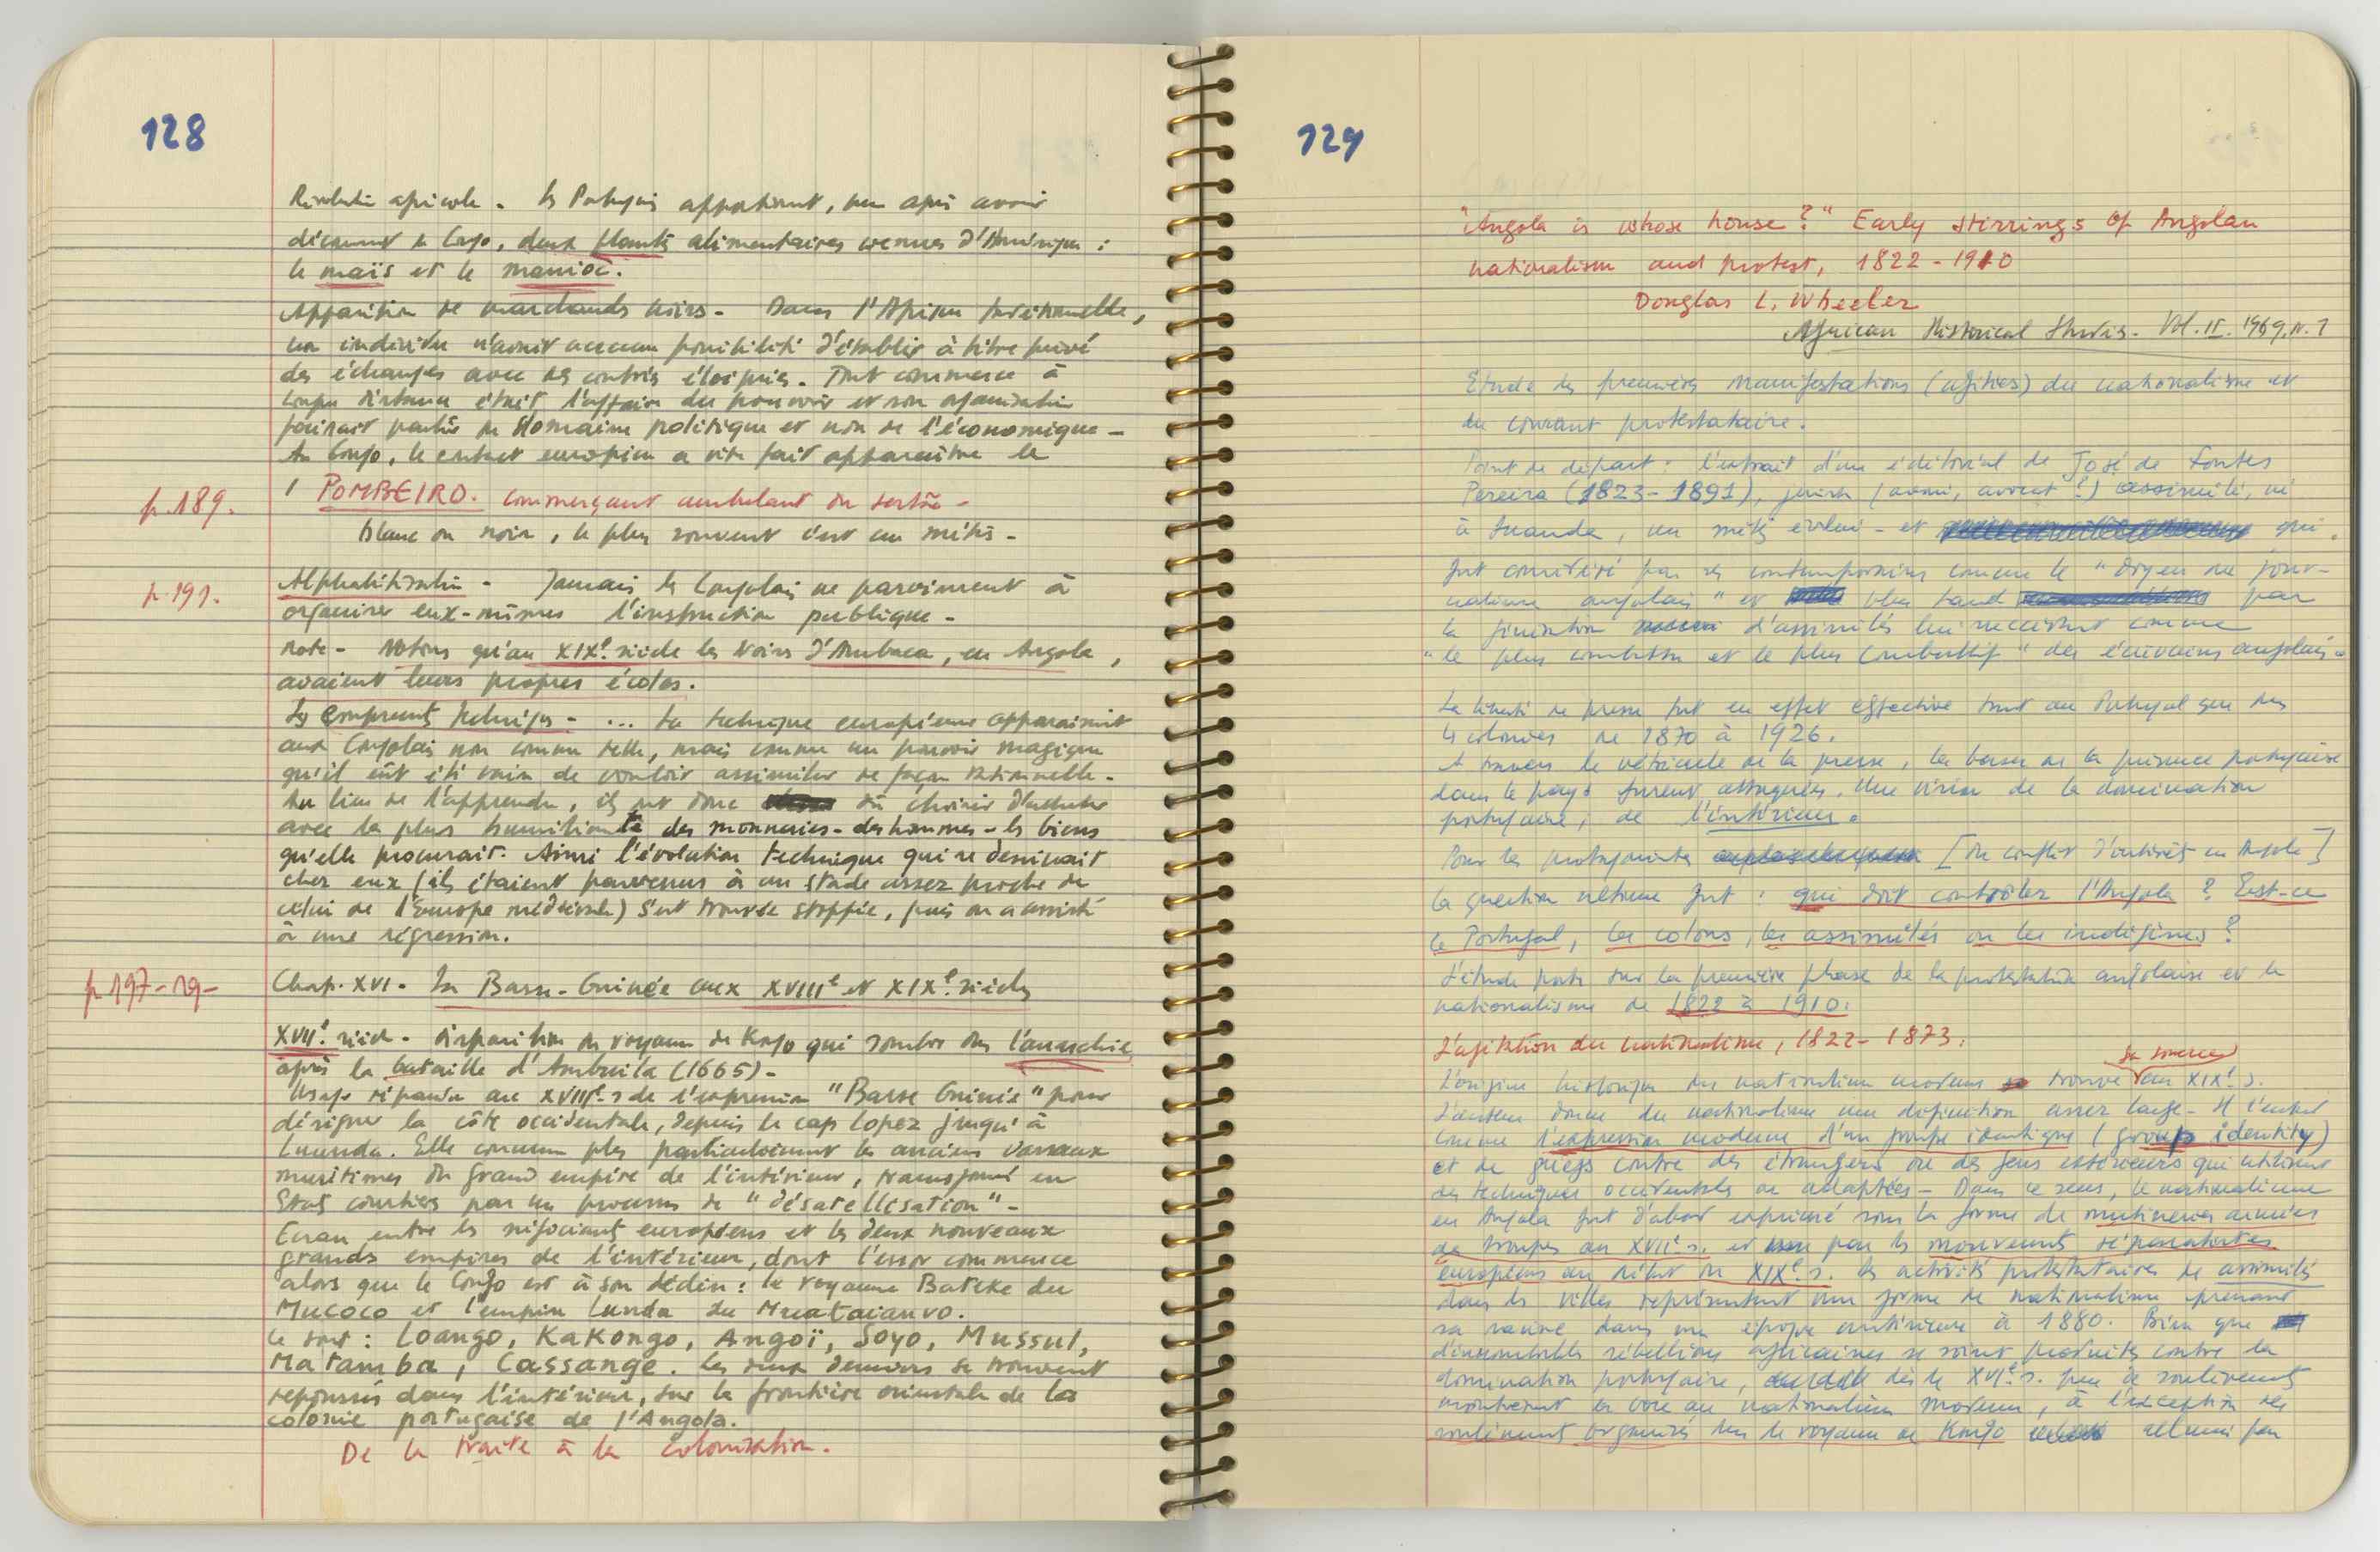 128
Révolution agricole - les Portugais apportèrent, un an après avoir
découvert le Congo, deux plantes alimentaires venues d'Amérique :
le maïs et le manioc.
Apparition de marchands noirs - Dans l'Afrique traditionnelle,
un individu n'avait aucune possibilité d'établir à titre privé
des échanges avec des contrées éloignées. Tout commerce à
longue distance était l'affaire du pouvoir et son organisation
faisait partie du domaine politique et non de l'économique -
Au Congo, le contact européen a vite fait apparaître le
p. 189.
POMBEIRO. commerçant ambulant du sertão -
blanc ou noir, le plus souvent c'est un métis -
p. 191.
Alphabétisation - Jamais les Congolais ne parvinrent à
organiser eux-mêmes l'instruction publique -
note - Notons qu'au XIXe. siècle les Noirs d'Ambaca, en Angola,
avaient leurs propres écoles.
Les emprunts techniques - ... La technique européenne apparaissait
aux Congolais non comme telle, mais comme un pouvoir magique
qu'il eût été vain de vouloir assimiler de façon rationnelle -
Au lieu de l'apprendre, ils ont donc dû choisir d'acheter
avec la plus humiliante des monnaies - des hommes - les biens
qu'elle procurait. Ainsi l'évolution technique qui se dessinait
chez eux (ils étaient parvenus à un stade assez proche de
celui de l'Europe médiévale) s'est trouvée stoppée, puis on a assisté
à une régression.
p. 197-19-
Chap. XVI - La Basse-Guinée aux XVIIIe et XIXe. siècles
XVIIe. siècle - disparition du royaume de Kongo qui sombre dans l'anarchie
après la bataille d'Ambuila (1665) -
Usage répandu au XVIIIe. s de l'expression "Basse Guinée" pour
désigner la côte occidentale, depuis le cap Lopez jusqu'à
Luanda. Elle concerne plus particulièrement les anciens vassaux
maritimes du grand empire de l'intérieur, transformés en
Etats courtiers par un processus de "désatellisation" -
Ecran entre les négociants européens et les deux nouveaux
grands empires de l'intérieur, dont l'essor commence
alors que le Congo est à son déclin : le royaume Bateke du
Mucoco et l'empire Lunda du Muataianvo.
Ce sont : Loango, Kakongo, Angoï, Soyo, Mussul,
Matamba, Cassange. Les deux derniers se trouvent
repoussés dans l'intérieur, sur la frontière orientale de la
colonie portugaise de l'Angola.
De la traite à la colonisation.
129
"Angola is whose house?" Early stirrings of Angolan
nationalism and protest, 1822 - 1910
Douglas L. Wheeler
African Historical Studies - Vol. II. 1969, N. 1
Etude des premières manifestations du nationalisme et
du courant protestataire.
Point de départ : l'extrait d'un éditorial de José de Fontes
Pereira (1823-1891), juriste assimilé, né
à Luanda, un métis évolué - et qui
fut considéré par ses contemporains comme le "doyen du jour-
nalisme angolais" et plus tard par
la génération d'assimilés lui succédant comme
"le plus combattu et le plus combattif" des écrivains angolais -
La liberté de presse fut en effet effective tant au Portugal que dans
les colonies de 1870 à 1926.
A travers le véhicule de la presse, les bases de la présence portugaise
dans le pays furent attaquées. Une vision de la domination
portugaise, de l'intérieur.
Pour les protagonistes [du conflit d'intérêts en Angola]
la question ultime fut : qui doit contrôler l'Angola ? Est-ce
le Portugal, les colons, les assimilés ou les indigènes ?
L'étude porte sur la première phase de la protestation angolaise et le
nationalisme de 1822 à 1910.
L'agitation du nationalisme, 1822-1873.
sa source
L'origine historique du nationalisme moderne trouve au XIXe. s.
L'auteur donne du nationalisme une définition assez large - Il l'entend
comme l'expression moderne d'un groupe identique (group identity)
et de griefs contre des étrangers ou des gens extérieurs qui utilisent
des techniques occidentales ou adaptées - Dans ce sens, le nationalisme
en Angola fut d'abord exprimé sous la forme de mutineries armées
de troupes au XVIIe. s. et par les mouvements séparatistes
européens au début du XIXe. s. Les activités protestataires de assimilés
dans les villes représentent une forme de nationalisme prenant
sa racine dans une époque antérieure à 1880. Bien que
d'innombrables rébellions africaines se soient produites contre la
domination portugaise, dès le XVIe. s. peu de soulèvements
montrèrent la voie au nationalisme moderne, à l'exception des
soulèvements organisés dans le royaume de Kongo